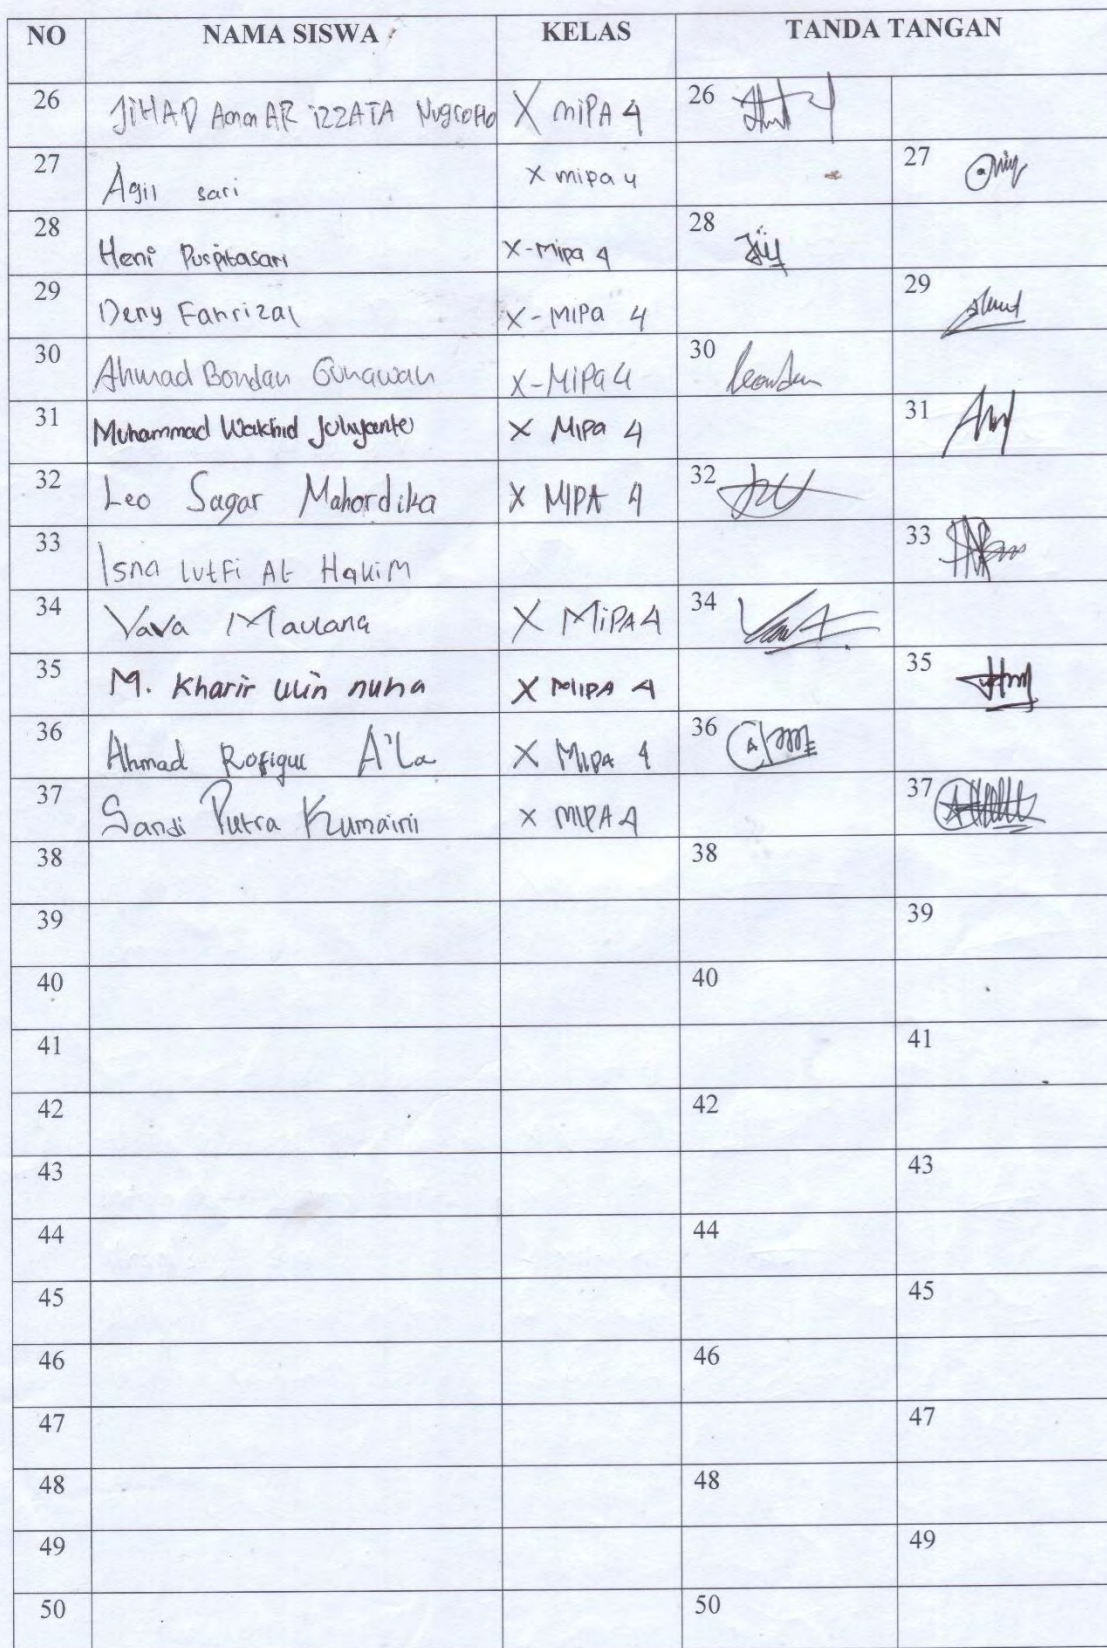 NO NAMA SISWA KELAS TANDA TANGAN
26 JIHAD AmmAR iZZATA NugroHo X MIPA 4 26
27 Agil sari X mipa 4 27
28 Heni Puspitasari X-Mipa 4 28
29 Deny Fahrizal X-MIPa 4 29
30 Ahmad Bondan Gunawan X-MiPa 4 30
31 Muhammad Wakhid Julyanto X Mipa 4 31
32 Leo Sagar Mahardika X MIPA 4 32
33 Isna lutfi Al Hakim 33
34 Vava Maulana X MiPA 4 34
35 M. Kharir ulin nuha X MIPA 4 35
36 Ahmad Rofiqul A'La X Mipa 4 36
37 Sandi Putra Kumaini X MIPA 4 37
38 38
39 39
40 40
41 41
42 42
43 43
44 44
45 45
46 46
47 47
48 48
49 49
50 50